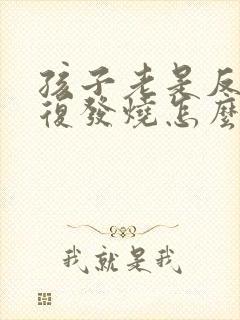 孩子老是反
復發燒怎麼
我就是我